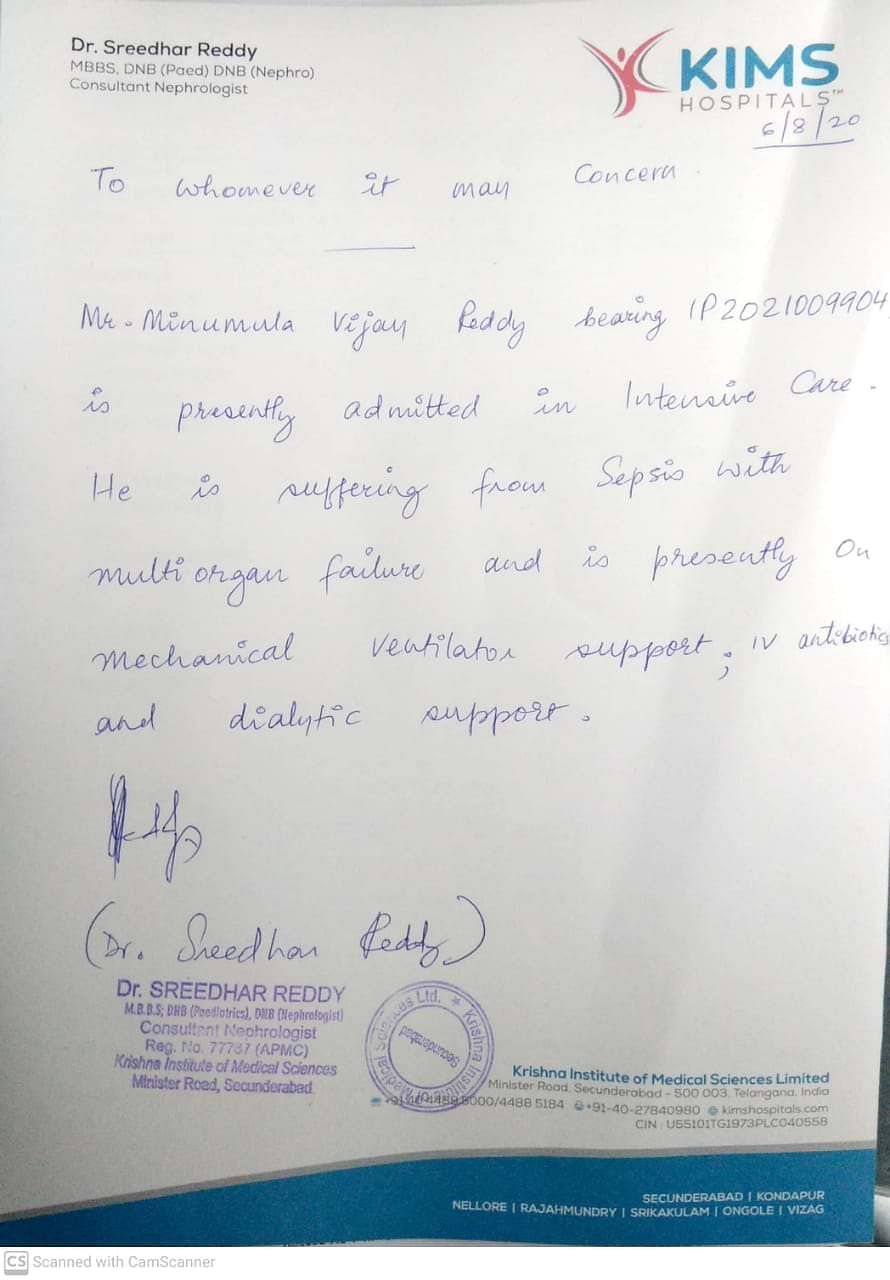 Dr. Sreedhar Reddy
MBBS, DNB (Paed) DNB (Nephro)
Consultant Nephrologist
KIMS
HOSPITALS™
6/8/20
To whomever it may Concern.
Mr. Minumula Vijay Reddy bearing IP2021009904
is presently admitted in Intensive Care.
He is suffering from Sepsis with
multi organ failure and is presently On
mechanical ventilator support; IV antibiotics
and dialytic support.
(Dr. Sreedhar Reddy)
Dr. SREEDHAR REDDY
M.B.B.S; DNB (Paediatrics), DNB (Nephrologist)
Consultant Nephrologist
Reg. No. 77737 (APMC)
Krishna Institute of Medical Sciences
Minister Road, Secunderabad.
Krishna Institute of Medical Sciences Ltd. ★
Secunderabad
Krishna Institute of Medical Sciences Limited
Minister Road, Secunderabad - 500 003, Telangana, India
5000/4488 5184 +91-40-27840980 kimshospitals.com
CIN : U55101TG1973PLC040558
SECUNDERABAD | KONDAPUR
NELLORE | RAJAHMUNDRY | SRIKAKULAM | ONGOLE | VIZAG
CS Scanned with CamScanner